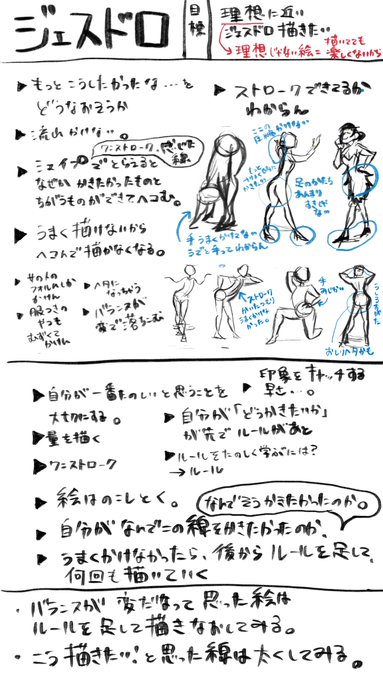 ジェスドロ
目標
理想に近い
ジェスドロ描きたい
→理想じゃない絵= 描いてても楽しくないから
▶もっとこうしたかったな…を
どうなおそうか
▶流れかけない。
ワンストローク、感じた線
▶シェイプでとらえると
なぜかかきたかったものと
ちがうものができてヘコむ。
▶うまく描けないから
ヘコんで描かなくなる。
▶女の人の
フォルムしか
かけん
▶服つきの
やつも
むずくて
かけん
▶ヘタに
なっちゃう
▶バランスが
変で落ちこむ
▶ストロークできてるか
わからん
足のかたち
あんまり
すきじゃ
ない
手うまくかけてない
うでと手ってわからん
ストローク
かいたつもり
うまくかけな
かった。
おしりヘタかも
▶自分が一番たのしいと思うことを
大切にする。
▶量を描く
▶ワンストローク
▶印象をキャッチする
早さ…。
▶自分が「どうかきたいか」
が先でルールがあと
▶ルールをたのしく学ぶには?
→ルール
▶絵はのこしとく。
なんでそうかきたかったのか。
▶自分がなんでこの線をかきたかったのか、
▶うまくかけなかったら、後からルールを足して、
何回も描いていく
・バランスが変だなって思った絵は
ルールを足して描きなおしてみる。
・こう描きたい!と思った線は太くしてみる。